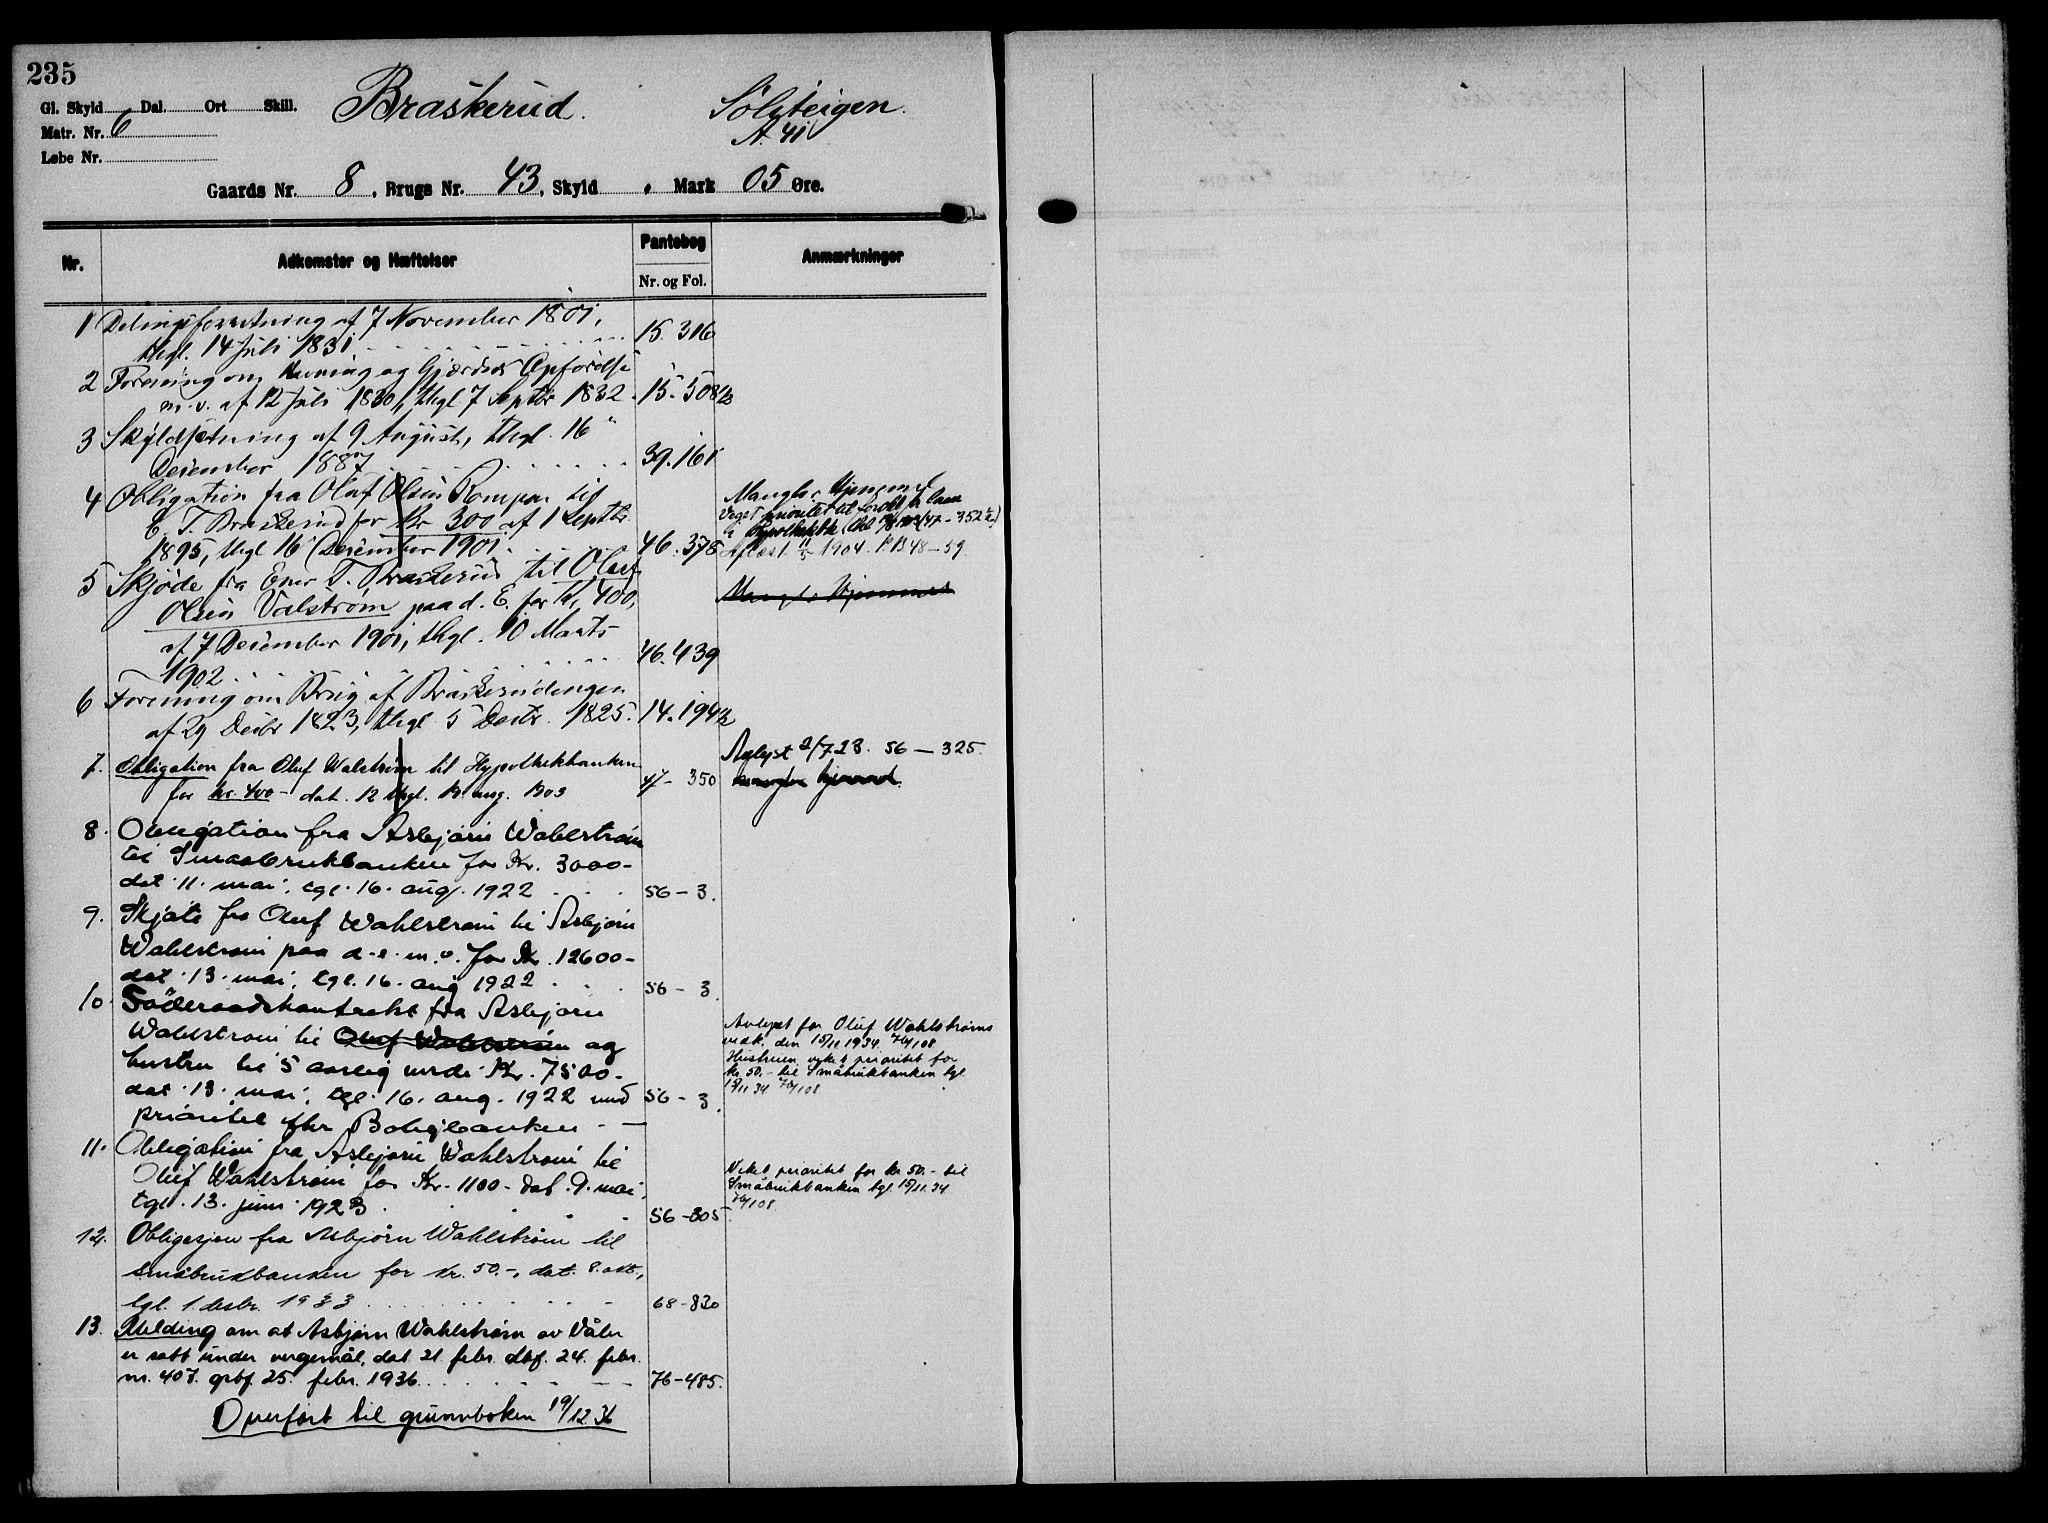 235
Gl. Skyld Dal Ort Skill.
Matr. Nr. 6
Løbe Nr.
Braskerud. Sølvteigen.
A. 41
Gaards Nr. 8, Brugs Nr. 43, Skyld , Mark 05 Øre.
Nr. Adkomster og Hæftelser Pantebog Anmærkninger
Nr. og Fol.
1 Delingsforretning af 7 November 1801,
thgl. 14 Juli 1831 15. 316
2 Forening om Havning og Gjærdes Opførelse
m. v. af 12 Juli 1830, thgl 7 Septbr 1832. 15. 508
3 Skyldsetning af 9 August, thgl. 16
December 1887 39. 161
4 Obligation fra Olaf Olsen Rompen til
E. T. Braskerud for Kr 300 af 1 Septbr.
1895, thgl 16 December 1901. 46. 378
Mangler Hjemmel
Veget prioritet til fordel for laan
Aflæst 11/5 1904. P.B 48 - 59.
5 Skjøde fra Ener T. Braskerud til Olaf
Olsen Valstrøm paa d. E. for Kr. 400,
af 7 December 1901, thgl. 10 Marts
1902 46. 439
Mangler Hjemmel
6 Forening om Brug af Braskerudengen
af 29 Decbr 1823, thgl 5 Decbr. 1825. 14. 194
7. Obligation fra Oluf Walstrøm til Hypothekbanken
for kr. 400 - dat. 12 thgl. 13. aug. 1903 47 - 350
Avlyst 2/7 23. 56 - 325.
mangler hjemmel.
8. Obligation fra Asbjørn Wahlstrøm
til Smaabrukbanken for Kr. 3000 -
dat. 11. mai, tgl. 16. aug. 1922 56 - 3.
9. Skjøte fra Oluf Wahlstrøm til Asbjørn
Wahlstrøm paa d. e. m. v. for Kr. 12600 -
dat. 13. mai, tgl. 16. aug 1922 56 - 3.
10 Föderaadskontrakt fra Asbjørn
Wahlstrøm til Oluf Wahlstrøm og
hustru til 5 aarlig verdi Kr. 7500 -
dat. 13. mai, tgl. 16. aug. 1922 med 56 - 3.
prioritet efter Boligbanken -
Avlyst for Oluf Wahlstrøms
vedk. den 15/11 1934. 74/108
Hustruen veket prioritet for
kr. 50. - til Småbrukbanken tgl.
15/11 34 74/108
11. Obligation fra Asbjørn Wahlstrøm til
Oluf Wahlstrøm for Kr. 1100 - dat. 9. mai,
tgl. 13. juni 1923. 56 - 305
Veket prioritet for kr 50. - til
Småbrukbanken tgl. 15/11 34
74/108
12. Obligasjon fra Asbjørn Wahlstrøm til
Småbrukbanken for kr. 50. -, dat. 8. okt.,
tgl. 1. desbr. 1933 68 - 830
13. Melding om at Asbjørn Wahlstrøm av Våler
er satt under vergemål, dat 21 febr. dbf. 24. febr.
nr. 407. grbf 25. febr. 1936 76 - 485.
Overført til grunnboken 19/12 36